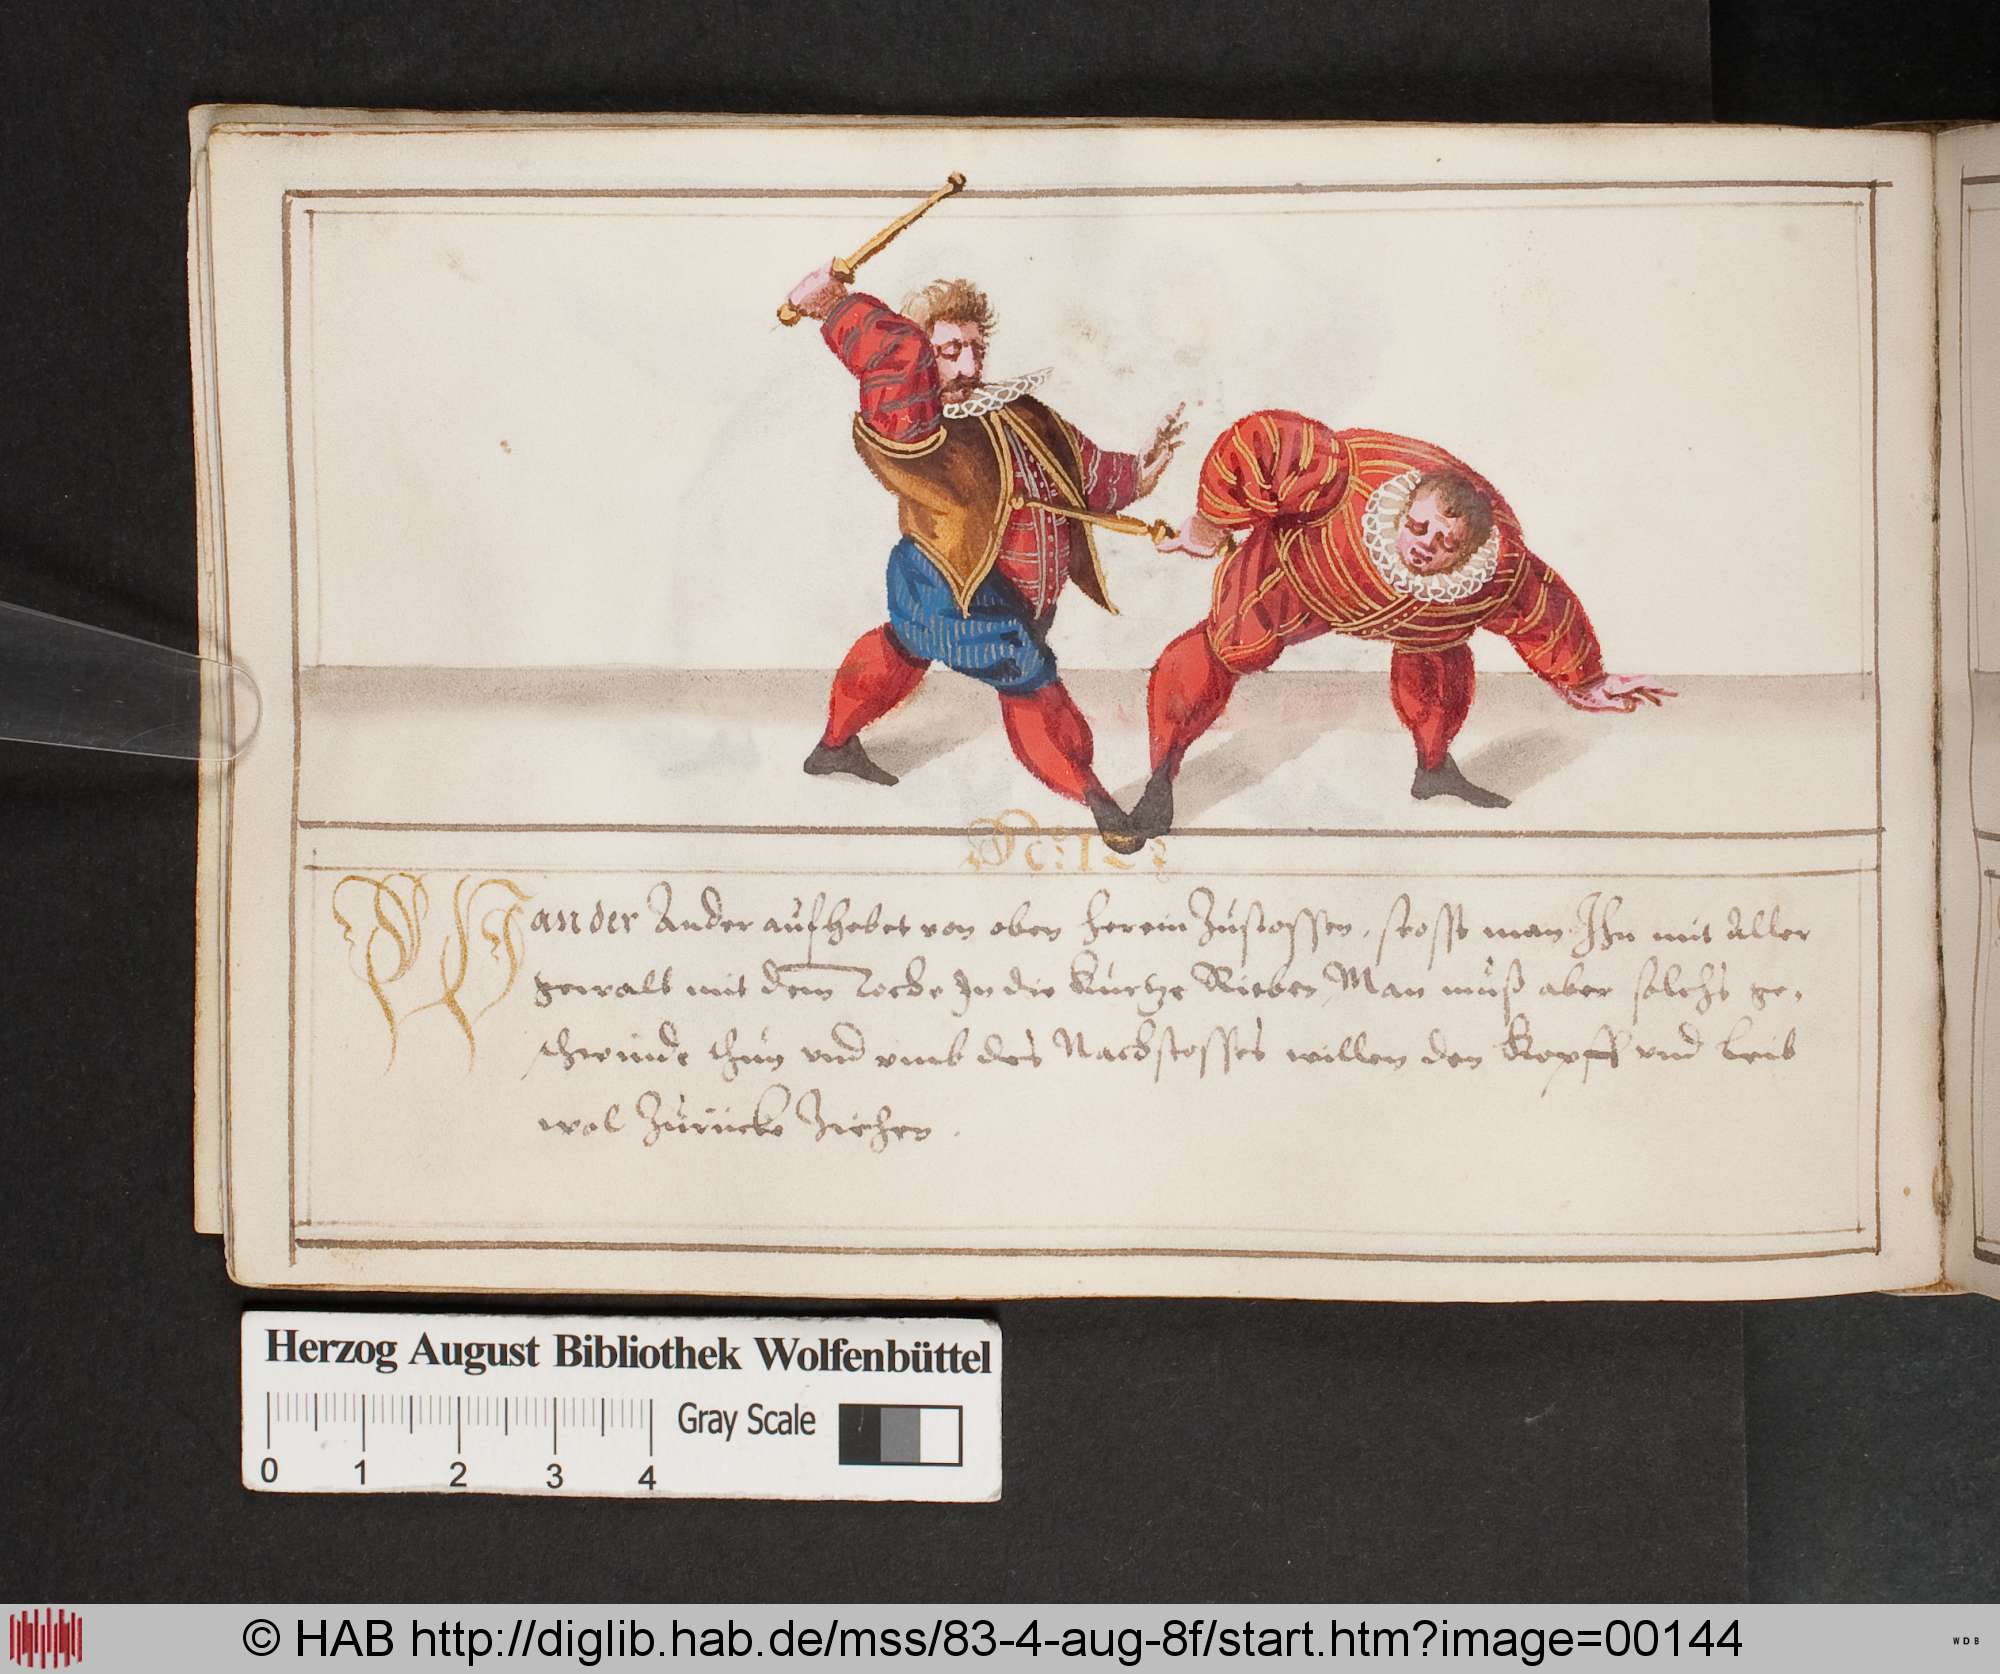 No: 127
Wan der Ander aufhebet von oben herein Zustossen, stosst man Ihn mit Aller
gewalt mit dem Tocke In die kurtze Rieben, Man muß aber solchs ge,
schwinde thun vnd vmb des Nachstosses willen den Kopff vnd Leib
wol Zurücke Ziehen.
Herzog August Bibliothek Wolfenbüttel
Gray Scale
0 1 2 3 4
© HAB http://diglib.hab.de/mss/83-4-aug-8f/start.htm?image=00144
WDB